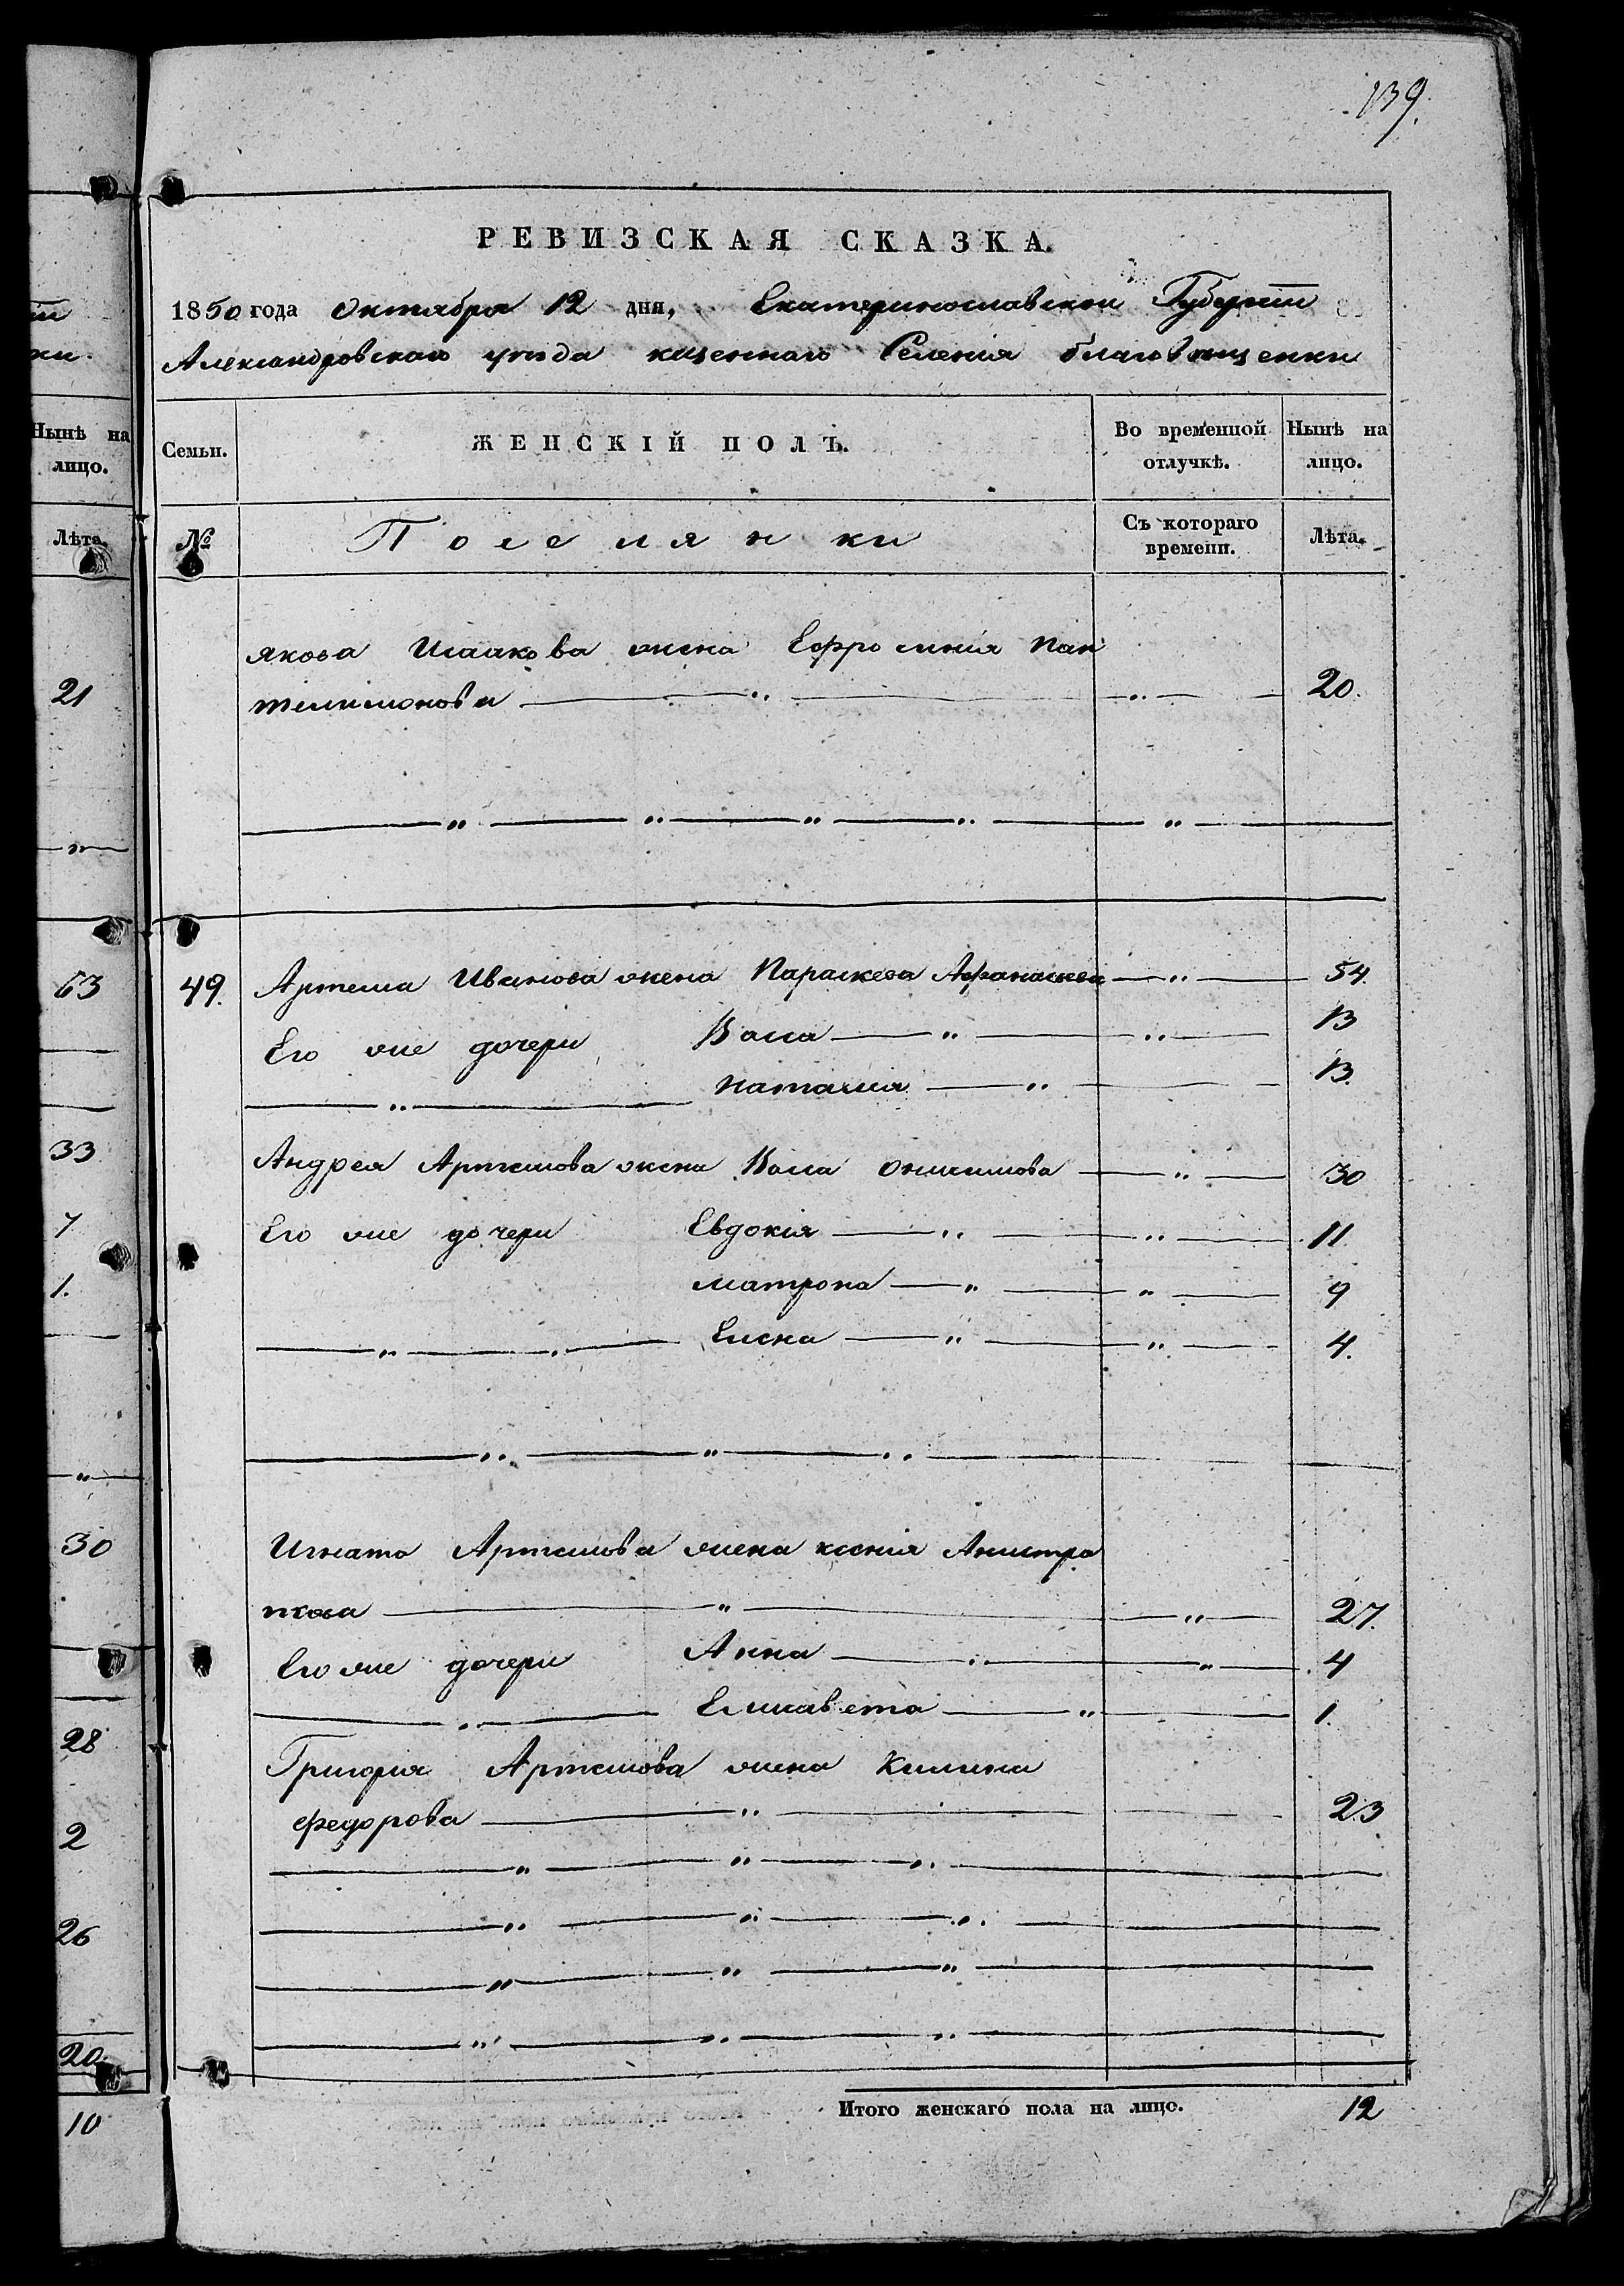 139.
РЕВИЗСКАЯ СКАЗКА.
1850 года Октября 12 дня, Екатеринославской Губернiи
Александровскаго уѣзда казеннаго Селенiя благовѣщенки
Нынѣ на лицо.
Семьи.
ЖЕНСКІЙ ПОЛЪ.
Во временной отлучкѣ.
Нынѣ на лицо.
Лѣта.
№
Поселянки
Съ котораго времени.
Лѣта.
Якова Исаакова жена Ефросинiя Пан
телимонова 20.
21
63
49. Артема Иванова жена Параскева Афанасьева 54.
Его же дочери Васа 13
Наталiя 13.
33
Андрея Артемова жена Васа Онисимова 30
7
Его же дочери Евдокiя 11
1.
Матрона 9
Елена 4.
30
Игната Артемова жена Ксенiя Анистра
това 27.
Его же дочери Анна 4
Елисавета 1.
28
Григорiя Артемова жена Килина
федорова 23
2
26
20.
10
Итого женскаго пола на лицо. 12